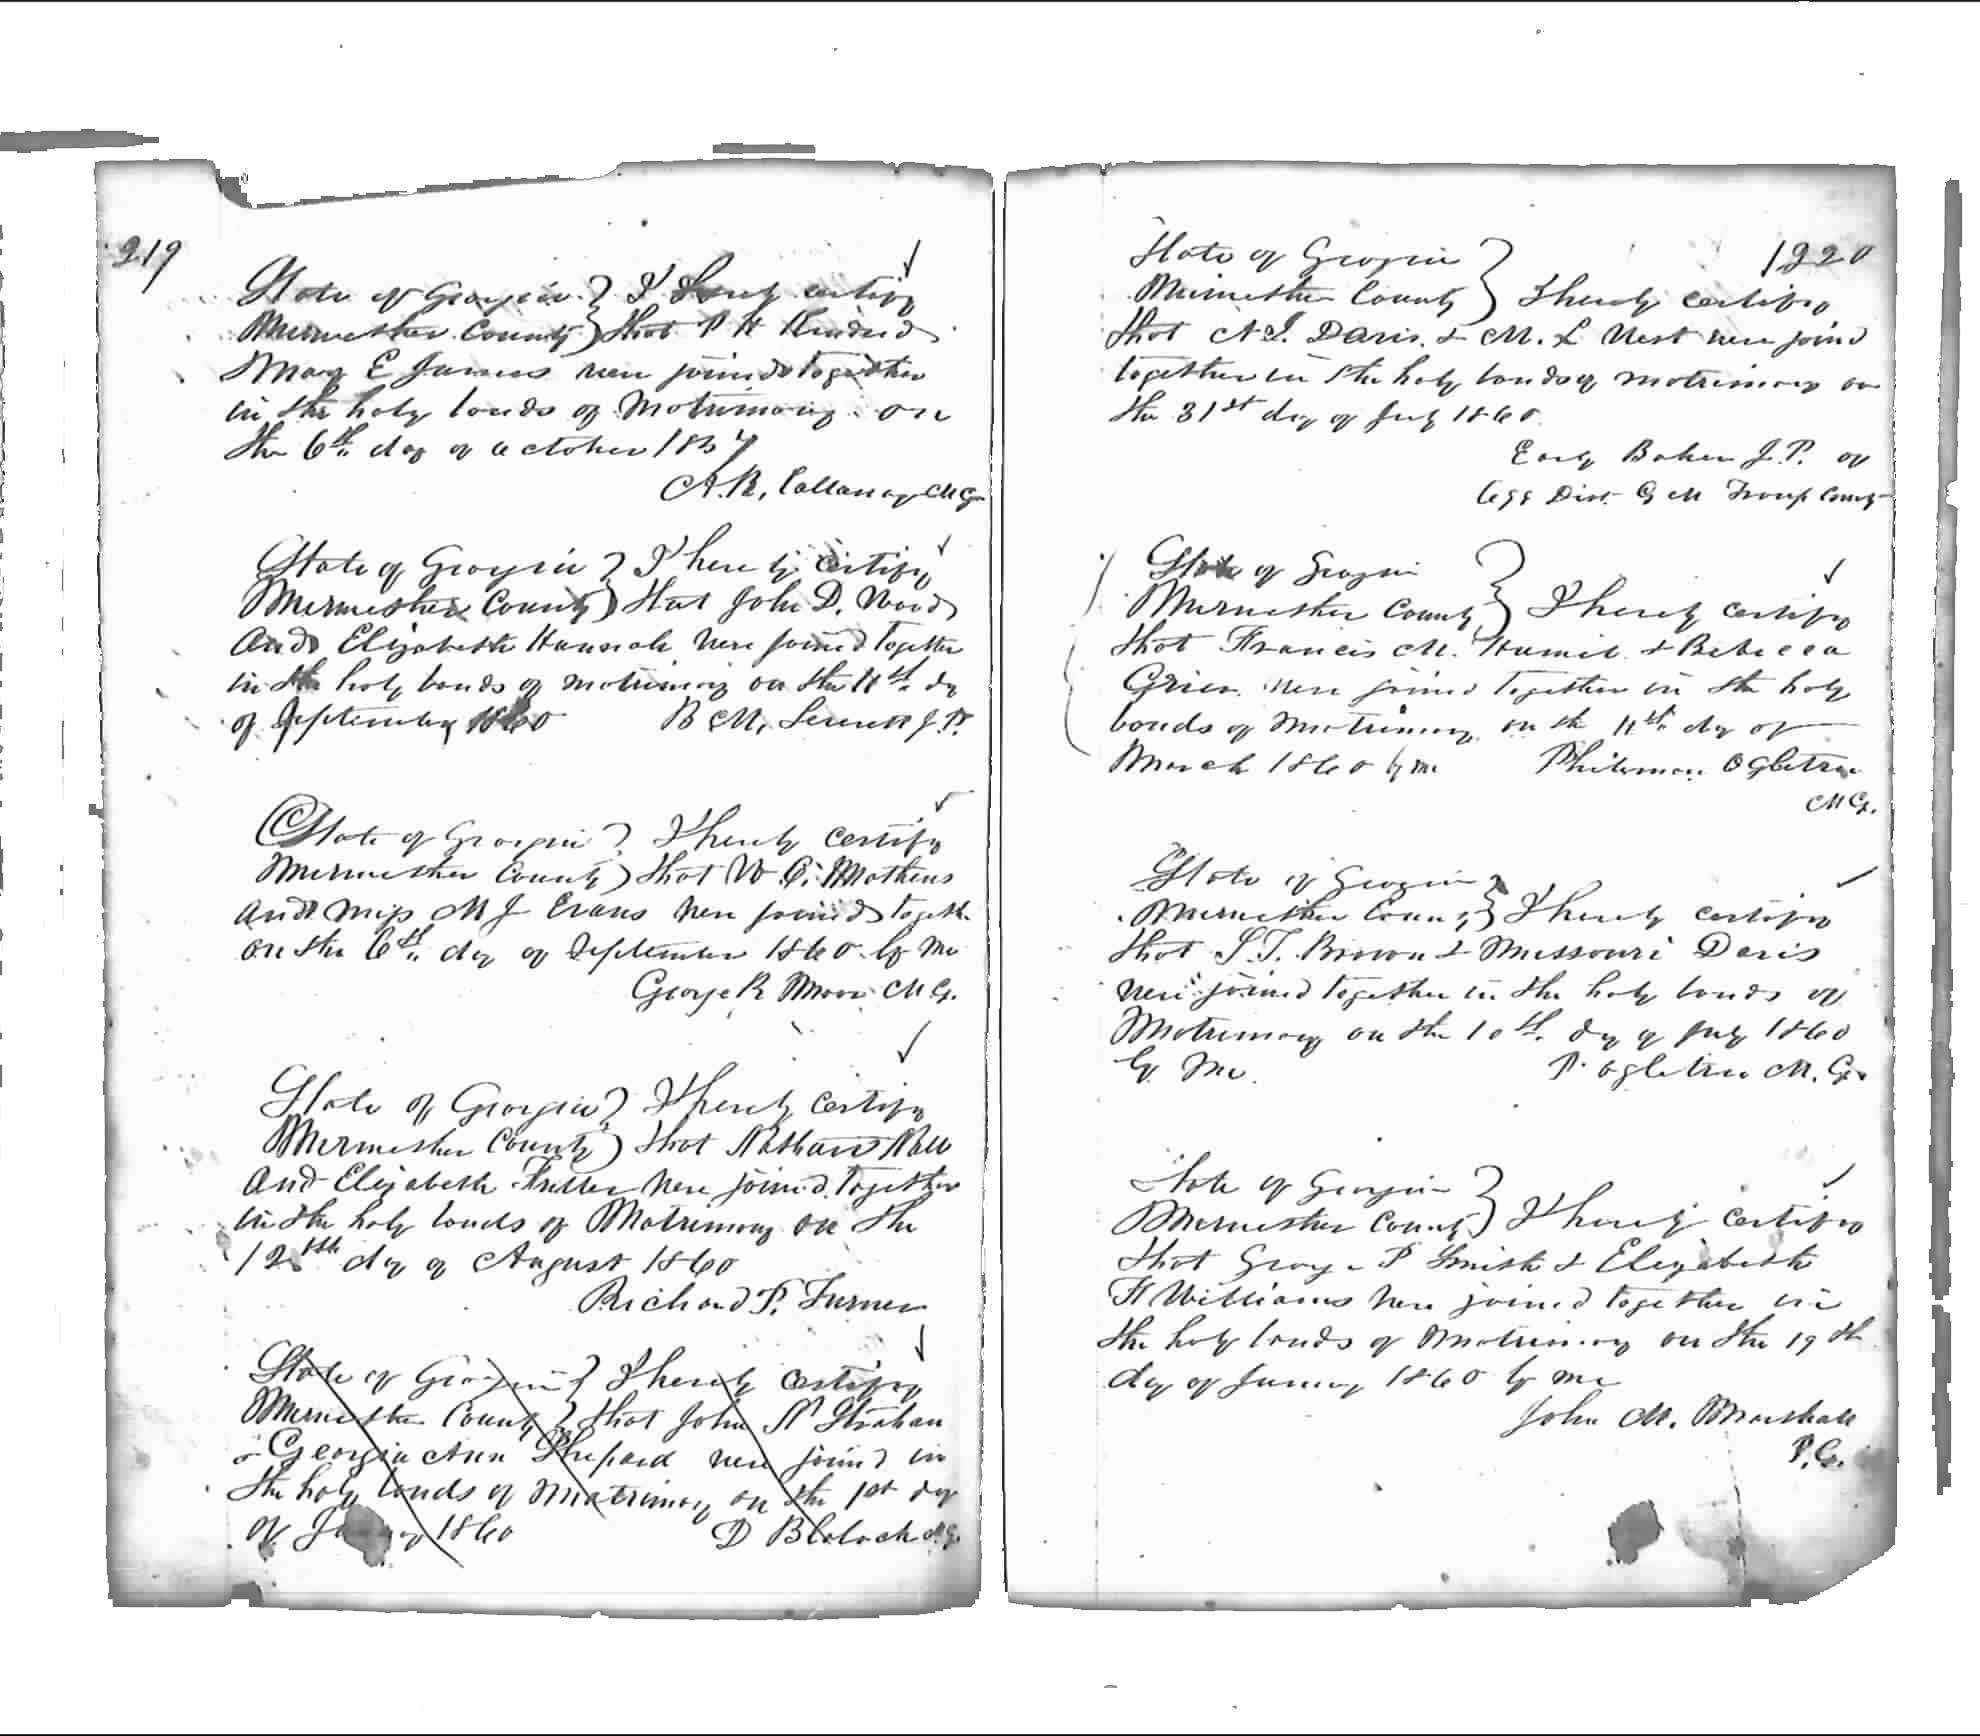 219
State of Georgia } I hereby certify
Meriwether County } that P H Kindred
Mary E James were joined together
in the holy bonds of Matrimony on
the 6th day of October 1857
A. R. Callaway MG
State of Georgia } I hereby certify
Meriwether County } that John D. Wood
And Elizabeth Hannah were joined together
in the holy bonds of matrimony on the 11th dy
of September 1860 B M. J.P.
State of Georgia } I hereby certify
Meriwether County } that W C. Mathews
and miss M J Evans were joined togeth
on the 6th day of September 1860 by me
George R Moore M G.
State of Georgia } I hereby certify
Meriwether County } that Nathan Nall
And Elizabeth Fuller were joined together
in the holy bonds of Matrimony on the
12th day of August 1860
Richard P. Turner
State of Georgia } I hereby certify
Meriwether County } that John N Strahan
& Georgia Ann Shepard were joined in
the holy bonds of matrimony on the 1st day
of 1860 D Blalock M.G.
220
State of Georgia }
Meriwether County } I hereby certify
that A J. Davis & M. L West were joind
together in the holy bonds of matrimony on
the 31st day of July 1860
Early Baker J.P. of
Dist. G M Troup County
State of Georgia }
Meriwether County } I hereby certify
that Francis M. & Rebecca
Grier were joined together in the holy
bonds of matrimony on the 11th dy of
March 1860 by me Philemon Ogletree
M G.
State of Georgia }
Meriwether County } I hereby certify
that S. T. Brown & Missouri Davis
were joined together in the holy bonds of
Matrimony on the 10th dy of July 1860
by me. P. Ogletree M. G.
State of Georgia }
Meriwether County } I hereby certify
that George P Smith & Elizabeth
H Williams were joined together in
the holy bonds of matrimony on the 19th
day of January 1860 by me
John M. Marshall
P. G.